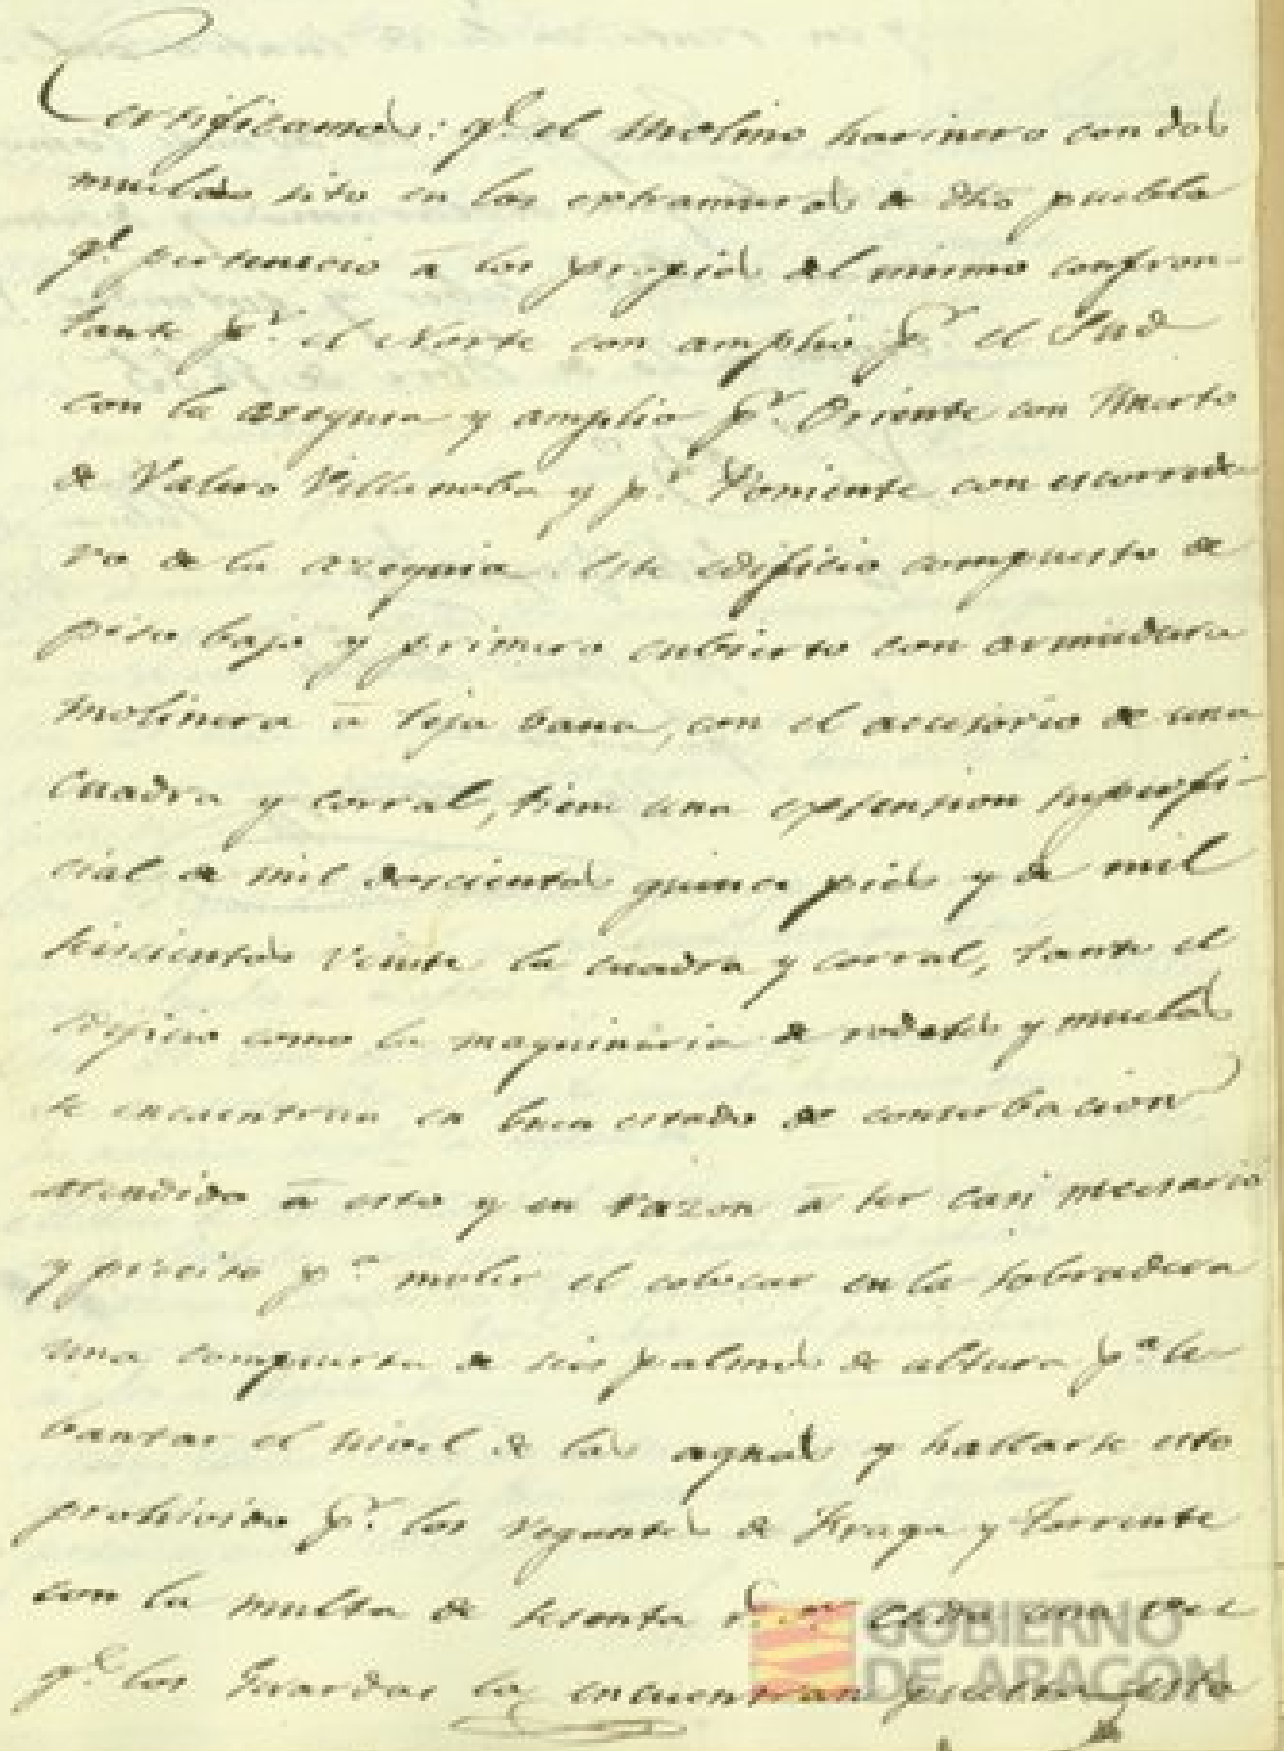 Certificamos: qe. el Molino harinero con dos
muelas sito en los extramuros de dho pueblo
qe. pertenecio á los propios del mismo confron-
tante pr. el Norte con amplio pr. el Sud
con la azequia y amplio pr. Oriente con Huerto
de Valero Villanoba y pr. Poniente con escorrede-
ro de la azequia. Este edificio compuesto de
piso bajo y primero cubierto con armadura
molinera á teja bana, con el accesorio de una
cuadra y corral, tiene una extension superfi-
cial de mil doscientos quince pies y de mil
seiscientos veinte la cuadra y corral, tanto el
edificio como la maquinaria de rodetes y muelas
se encuentran en buen estado de conserbacion
atendido á esto y en razon á ser casi necesario
y preciso pa. moler el colocar en la sobradera
una compuerta de seis palmos de altura pa. le-
bantar el nivel de las aguas y hallarse esto
prohivido pr. los regantes de Fraga y Torrente
con la multa de sesenta rs. vn. cada una vez
qe. los Guardas la encuentran puesta esta
GOBIERNO
DE ARAGON